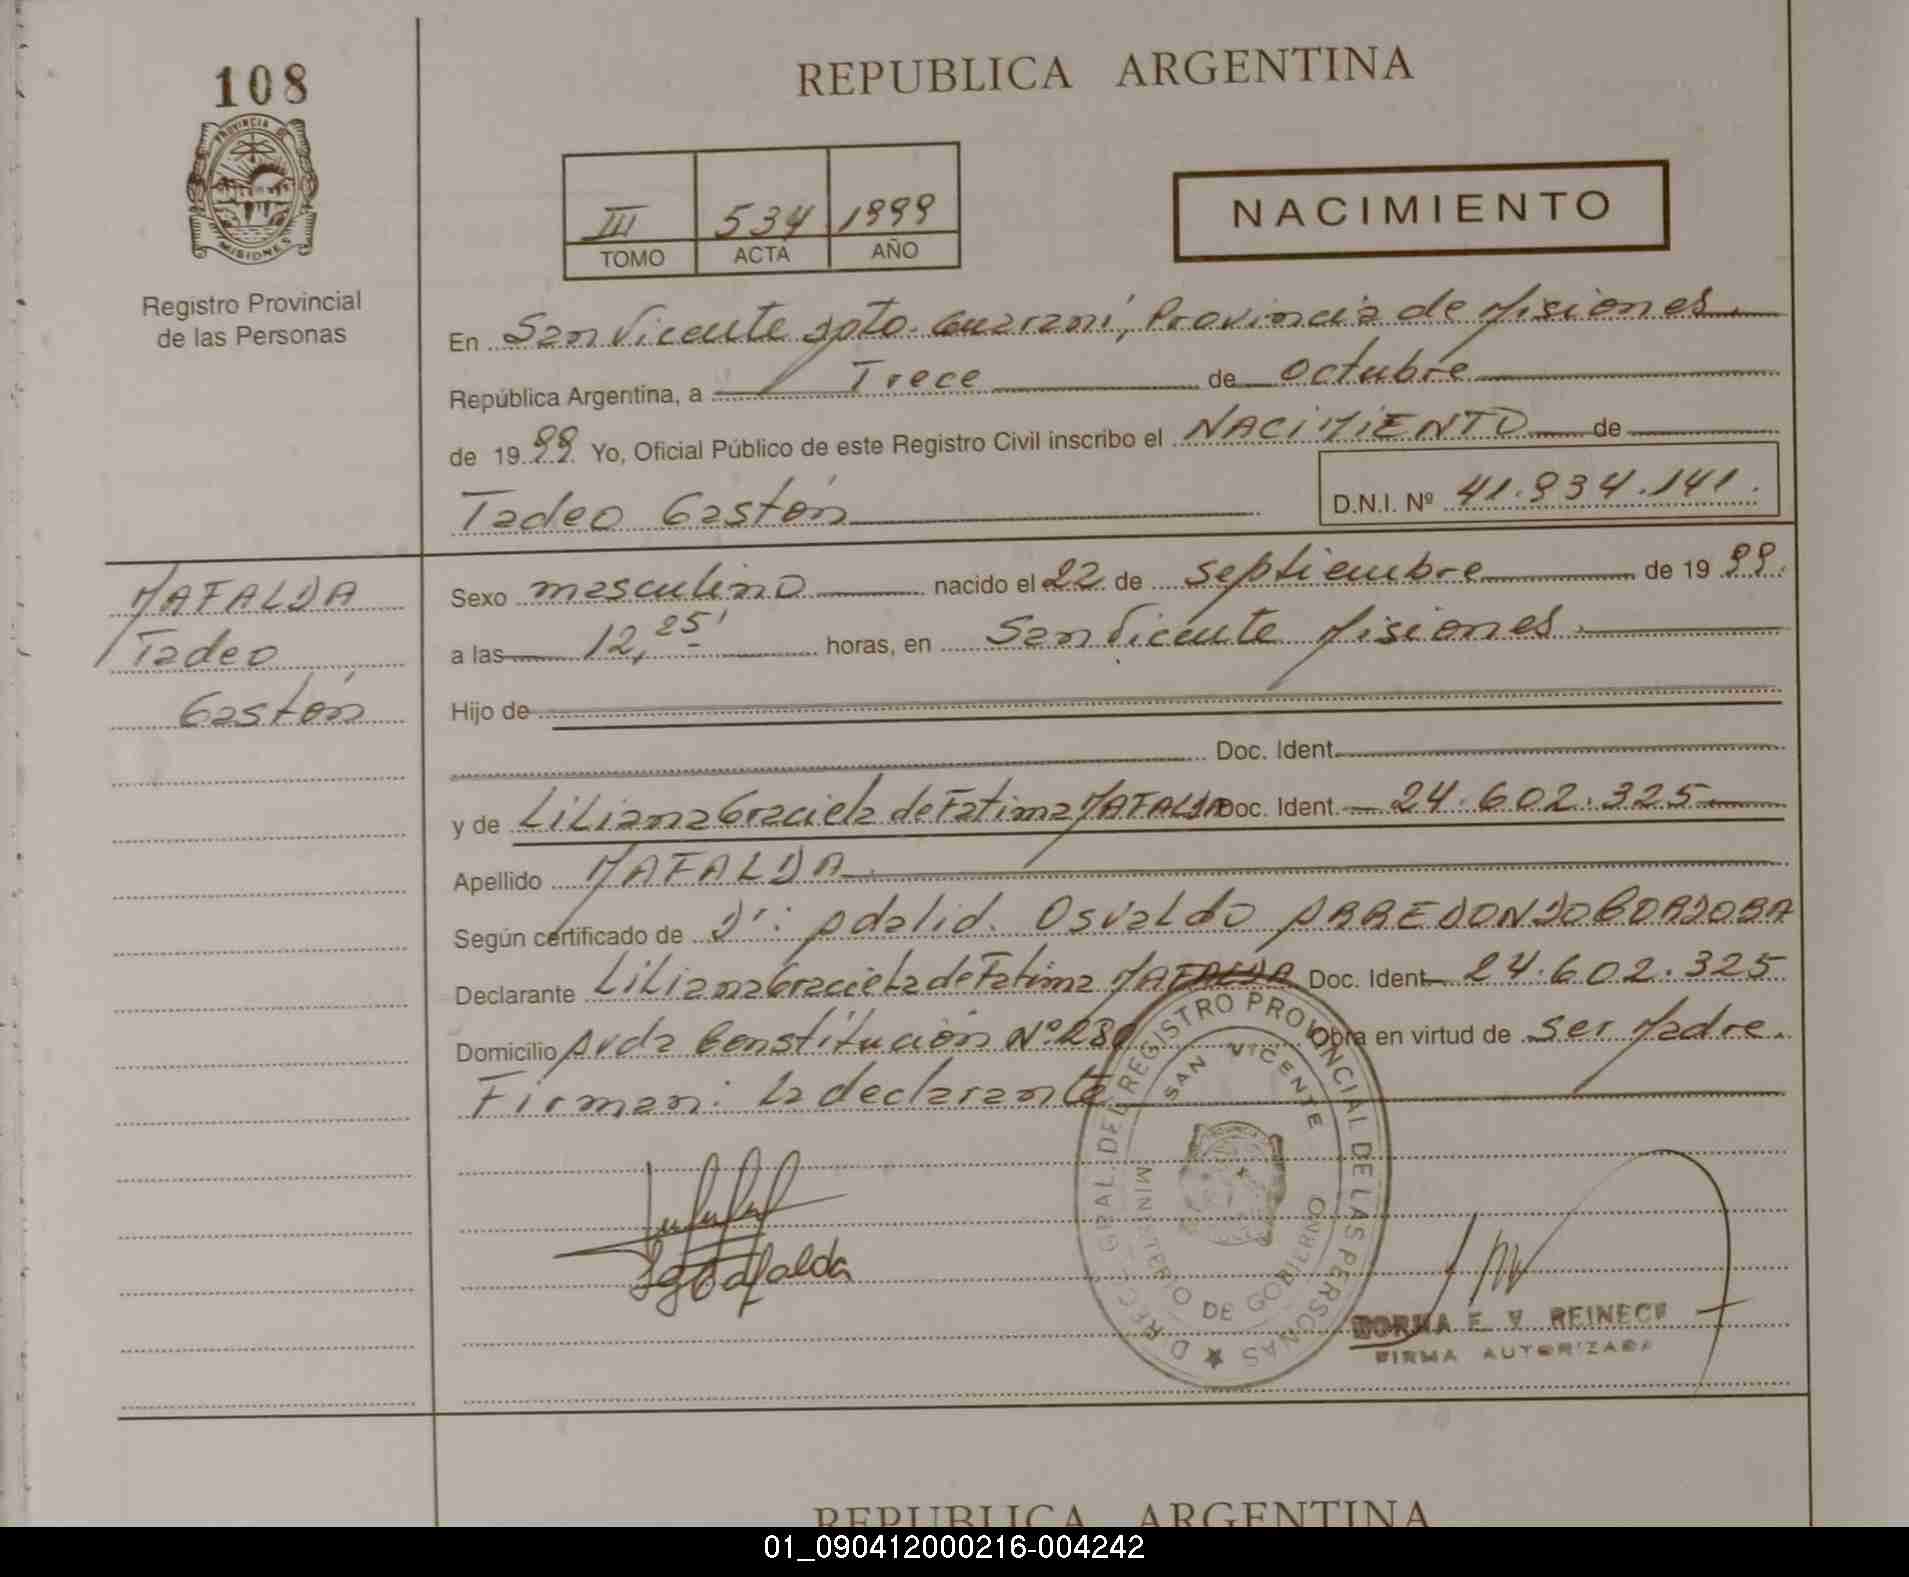 108
PROVINCIA DE
MISIONES
Registro Provincial
de las Personas
REPUBLICA ARGENTINA
III 534 1999
TOMO ACTA AÑO
NACIMIENTO
En San Vicente Dpto. Guaraní, Provincia de Misiones.
República Argentina, a Trece de octubre
de 1999 Yo, Oficial Público de este Registro Civil inscribo el NACIMIENTO de
Tadeo Gastón D.N.I. Nº 41.934.141.
MAFALDA
Tadeo
Gastón
Sexo masculino nacido el 22 de septiembre de 1999.
a las 12,25' horas, en San Vicente Misiones.
Hijo de
Doc. Ident.
y de Liliana Graciela de Fatima MAFALDA Doc. Ident. 24.602.325
Apellido MAFALDA.
Según certificado de Dr: Adalid. Osvaldo ARREDONDO CORDOBA
Declarante Liliana Graciela de Fatima MAFALDA Doc. Ident 24.602.325
Domicilio Avda Constitución Nº Obra en virtud de ser Madre.
Firman: la declarante
DIREC. GRAL. DEL REGISTRO PROVINCIAL DE LAS PERSONAS
SAN VICENTE
MINISTERIO DE GOBIERNO
Mafalda
NORMA E. V. REINECK
FIRMA AUTORIZADA
REPUBLICA ARGENTINA
01_090412000216-004242